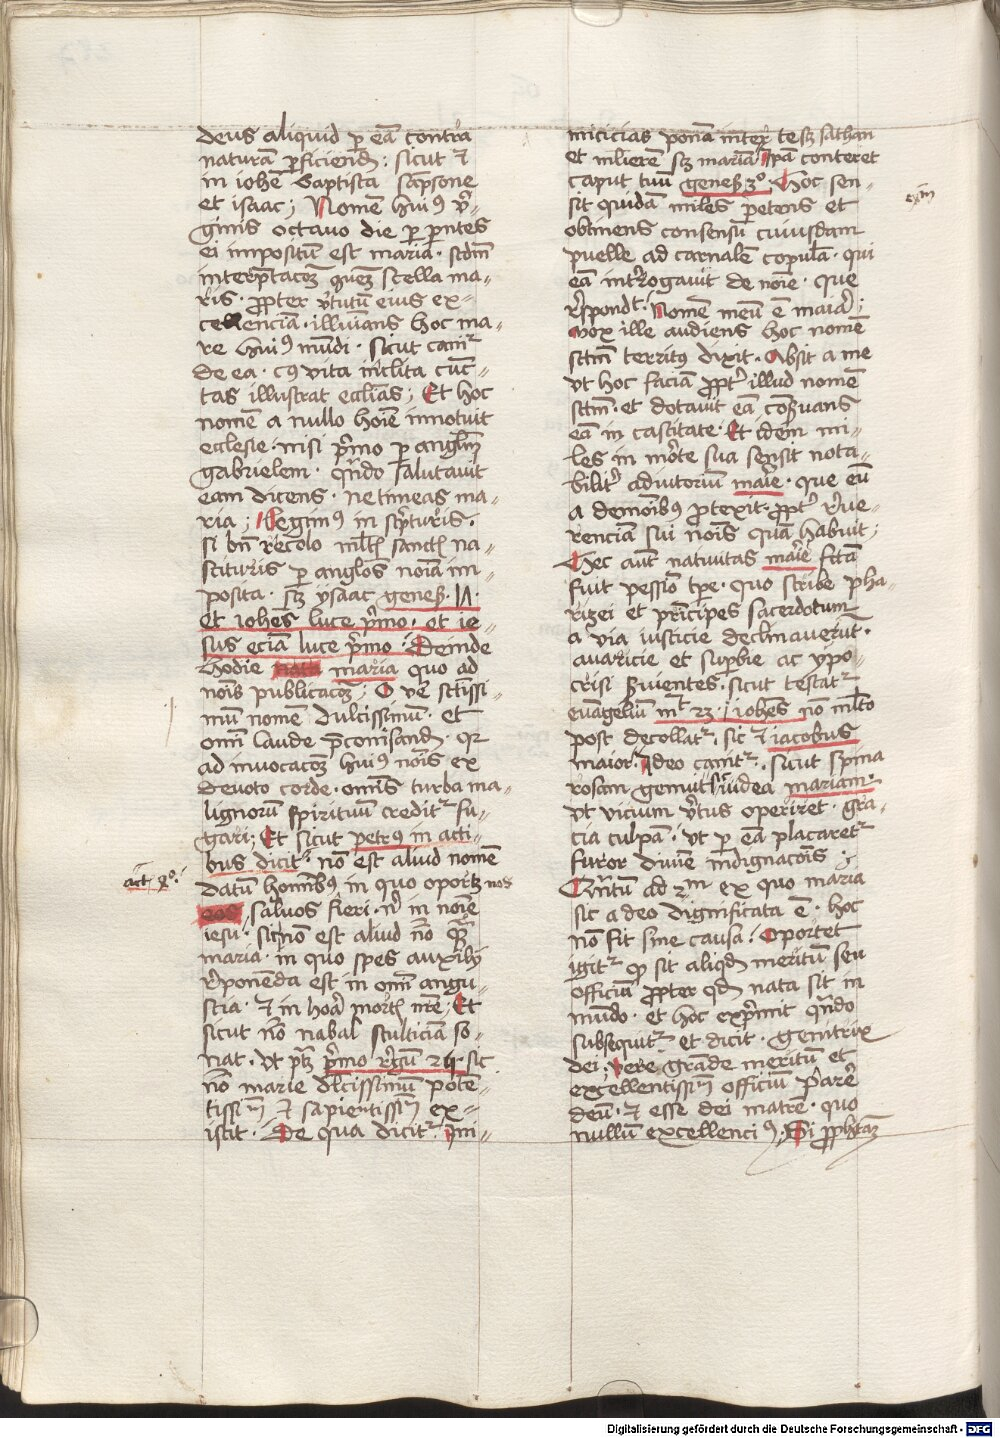 deus aliquid ꝑ eā contra
naturā ꝑficiend̄ : sicut ⁊
in iohē baptista sāpsone
et isaac ; Nomē huiꝰ v̓-
ginis octauo die ꝑ pn̄tes
ei impositum est maria · scdm̄
interp̄tacōꝫ quēꝫ stella ma-
ris · ꝓpter v̓tutū eius ex-
cellenciā · illuians hoc ma-
re huiꝰ mūdi · sicut canit᷑
de ea · cꝰ vita inclita cūc-
tas illustrat ecclias ; Et hoc
nomē a nullo hoīe innotuit
ecclesie · nisi p̓mo ꝑ angl̄m
gabrielem · qn̄do salutauit
eam dicens · ne timeas ma-
ria ; Legimꝰ in sc̓pturis ·
si bn̄ recolo ml̄tꝭ sanctꝭ na-
scituris ꝑ anglos noīa im-
posita · sꝫ ysaac geneß · 17 ·
et iohēs luce p̓mo · et ie-
sus eciā luce p̓mo ; Deinde
hodie nata maria quo ad
noīs publicacōꝫ ; O ve̓ sct̄issi-
mū nomē dulcissimū · et
om̄i laude p̄conisand̄ · qr
ad inuocacōꝫ huiꝰ noīs ex
deuoto corde · om̄is turba ma-
lignorū spirituū credit᷑ fu-
gari ; Et sicut petrꝰ in acti-
bus dicit · nō est aliud nomē
act 4º ·
datū hom̄ibꝰ in quo oportꝫ nos
eos saluos fieri · n̓ in noīe
iesu · sic nō est aliud nō qᷓꝫ
maria · in quo spes auxilij
r̓ponēda est in om̄i angu-
stia · ⁊ in hora mortꝭ nr̄e ; Et
sicut nō nabal stulticiā so-
nat · vt ptꝫ p̓mo r̓gū 25 · sic
nō marie dlcissimū poten-
tissīm ⁊ sapientissīm ex-
istit · De qua dicit᷑ · Ini-
micicias ponā inter te sꝫ sathan
et mlierē sꝫ mariā Ipā conteret
caput tuū geneß 3º · Hoc sen-
exm̄
sit quidā miles petens et
obtinens consensū cuiusdam
puelle ad carnalē copulā · qui
eā int̓rogauit de noīe · que
r̓spondt · Nomē meū ē maia ;
Mox ille audiens hoc nomē
sctm̄ territꝰ dixit · Absit a me
vt hoc faciā ꝓpt̓ illud nomē
sctm̄ · et dotauit eā cōẜuans
eā in castitate · Et idem mi-
les in morte sua sensit nota-
bilit̓ adiutoriū marie · que eū
a demonibꝰ ꝓtexit · ꝓpt̓ r̓ue-
renciā sui noīs quā habuit ;
Hec aūt natiuitas marie fctā
fuit pessīo tꝑe · quo scribe pha-
rizei et principes sacerdotum
a via iusticie declinauerūt ·
auaricie et suꝑbie ac ypo-
crisi ẜuientes · sicut testat᷑
euāgeliū mt 23 · iohēs nō ml̄to
post decollat᷑ · sic ⁊ iacobus
maior · Ideo canit᷑ · sicut spina
rosam genuit iudea mariam ·
vt vicium v̓tus operiret · gra-
cia culpā · vt ꝑ eā placaret᷑
furor diuīe indignacōis ;
Qn̄tū ad 2m ex quo maria
sic adeo dignificata ē · hoc
non fit sine causa · Oportet
igit᷑ qꝫ sit aliqd̄ meritū seu
officiū ꝓpter qd̄ nata sit in
mūdo · et hoc exp̓mit qn̄do
subsequit᷑ et dicit · genitrix
dei · Vere grāde meritū et
excellentissīm officiū ꝑarē
deū · ⁊ esse dei matrē · quo
nullū excellenciꝰ ; Si ꝓph̄taꝫ